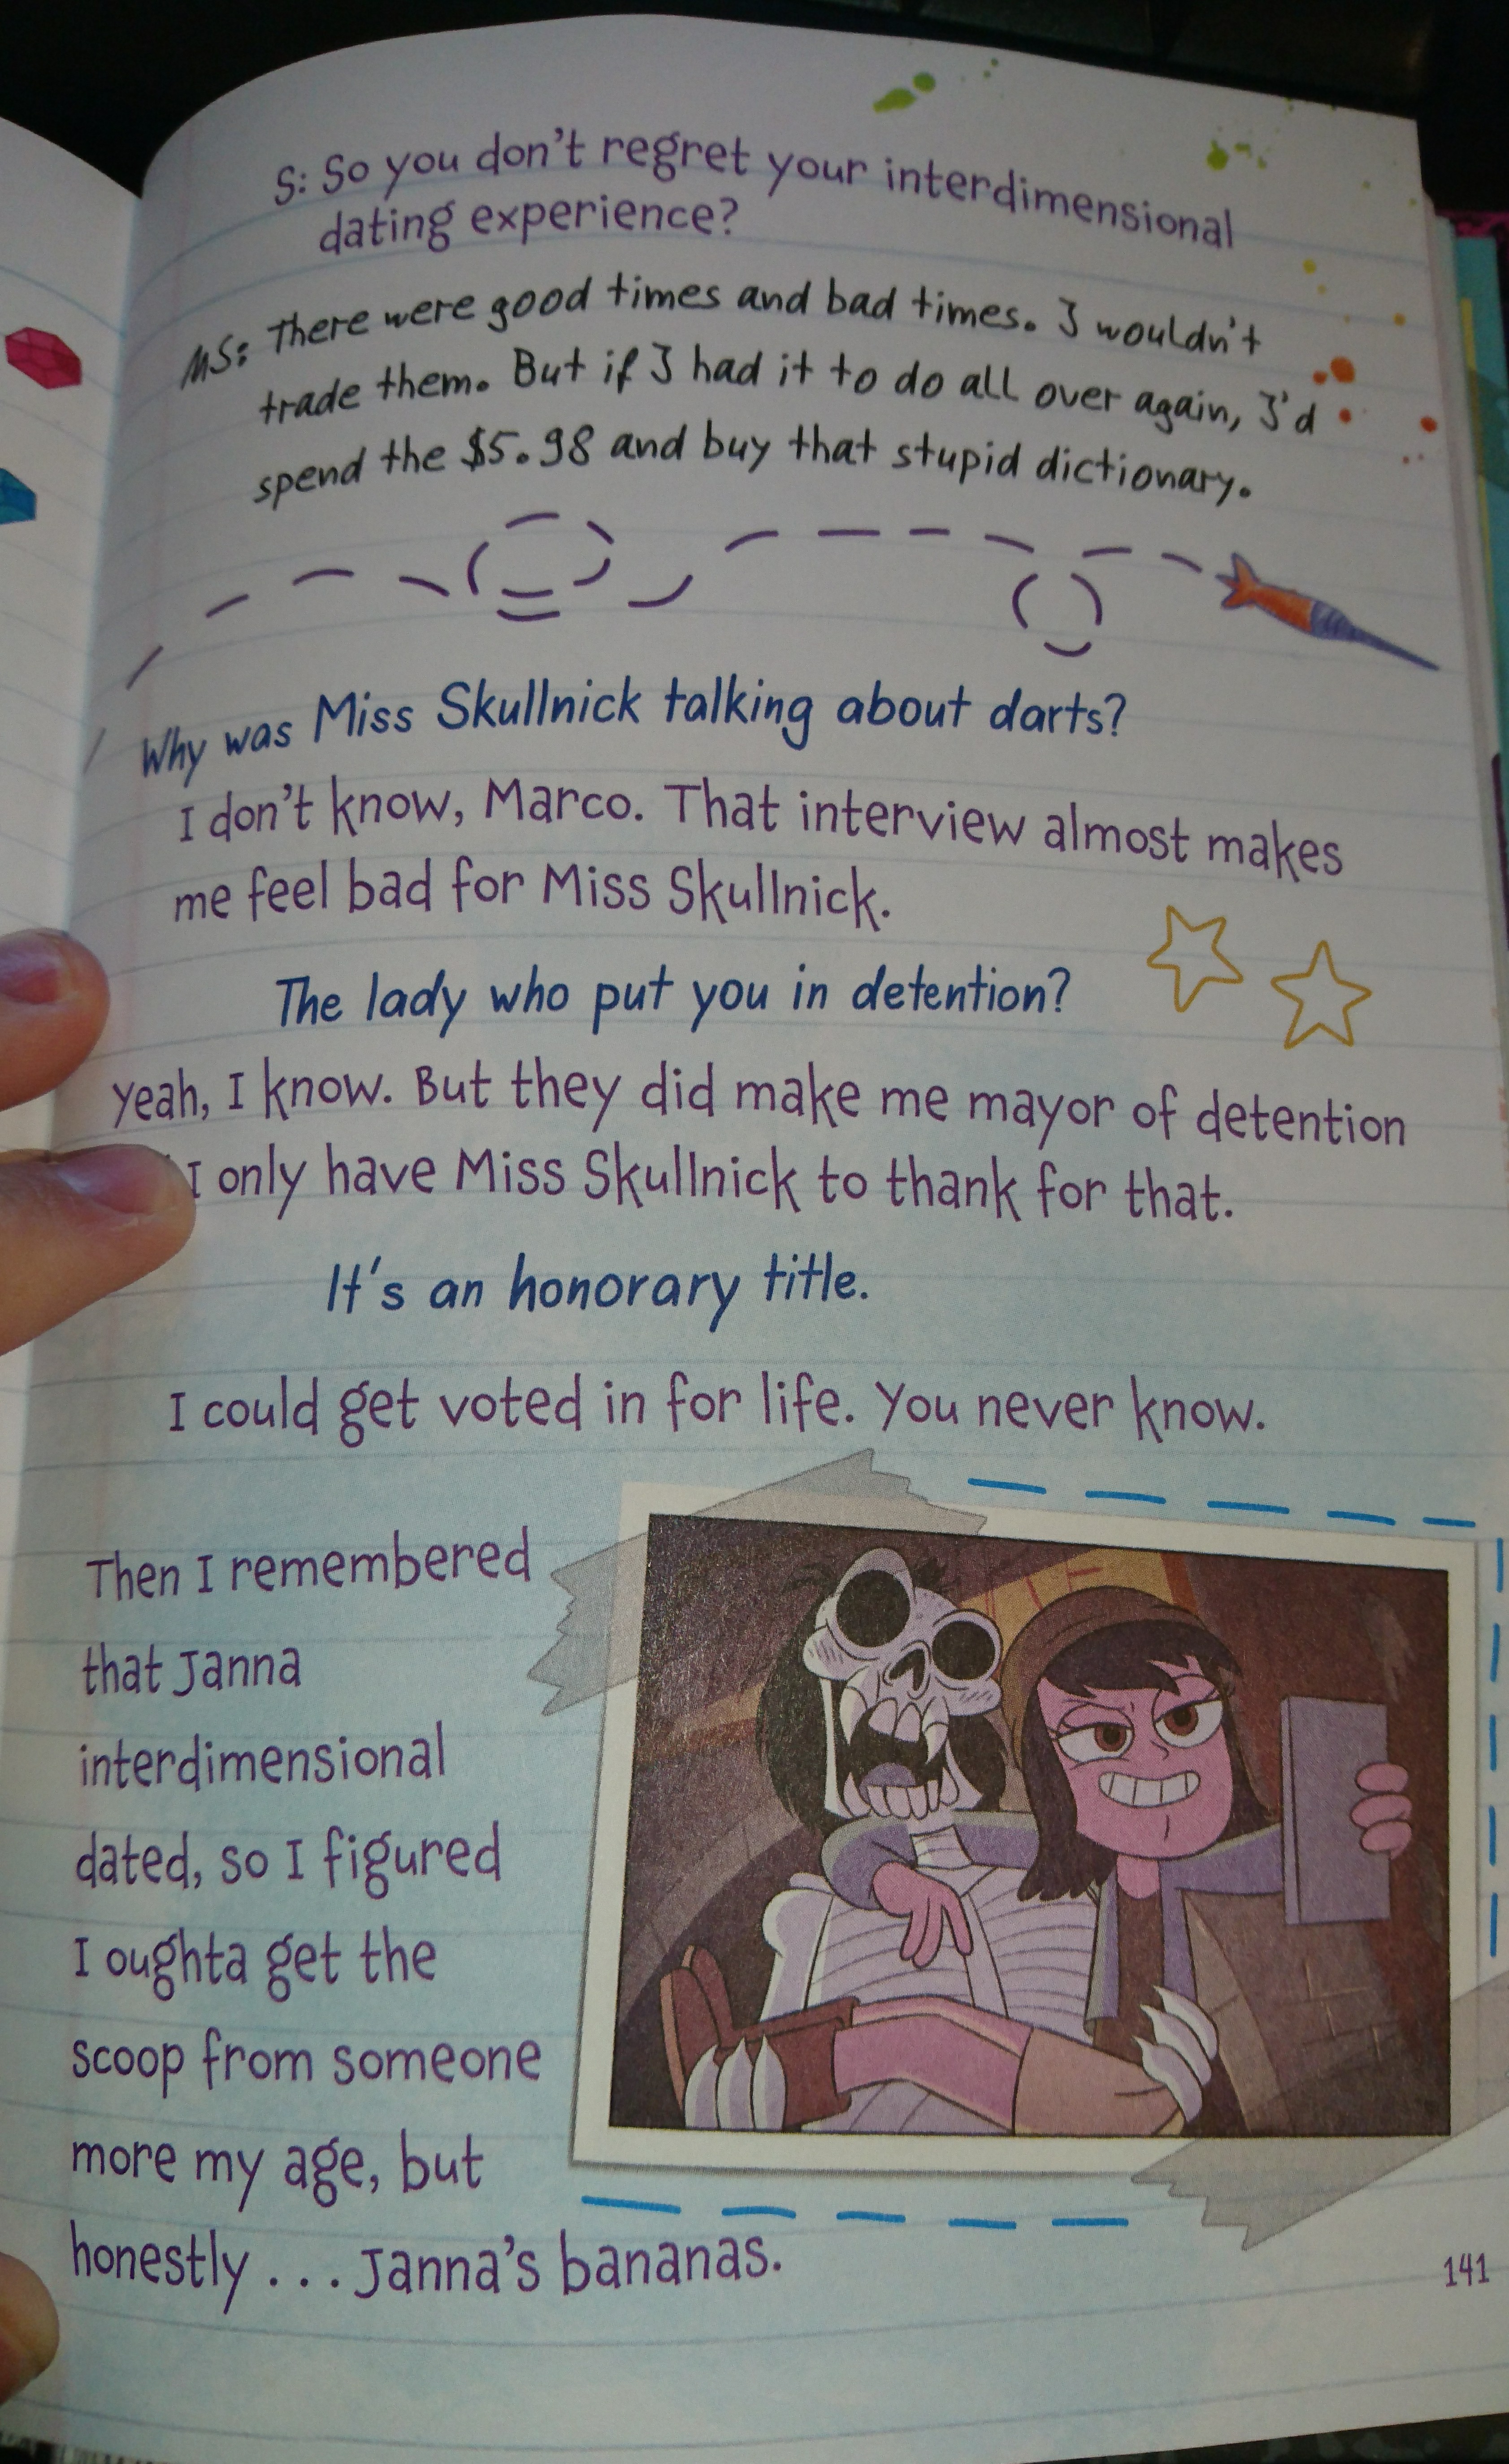 S: So you don't regret your interdimensional
dating experience?
MS: There were good times and bad times. I wouldn't
trade them. But if I had it to do all over again, I'd
spend the $5.98 and buy that stupid dictionary.
Why was Miss Skullnick talking about darts?
I don't know, Marco. That interview almost makes
me feel bad for Miss Skullnick.
The lady who put you in detention?
Yeah, I know. But they did make me mayor of detention
I only have Miss Skullnick to thank for that.
It's an honorary title.
I could get voted in for life. You never know.
Then I remembered
that Janna
interdimensional
dated, so I figured
I oughta get the
scoop from someone
more my age, but
honestly... Janna's bananas.
141